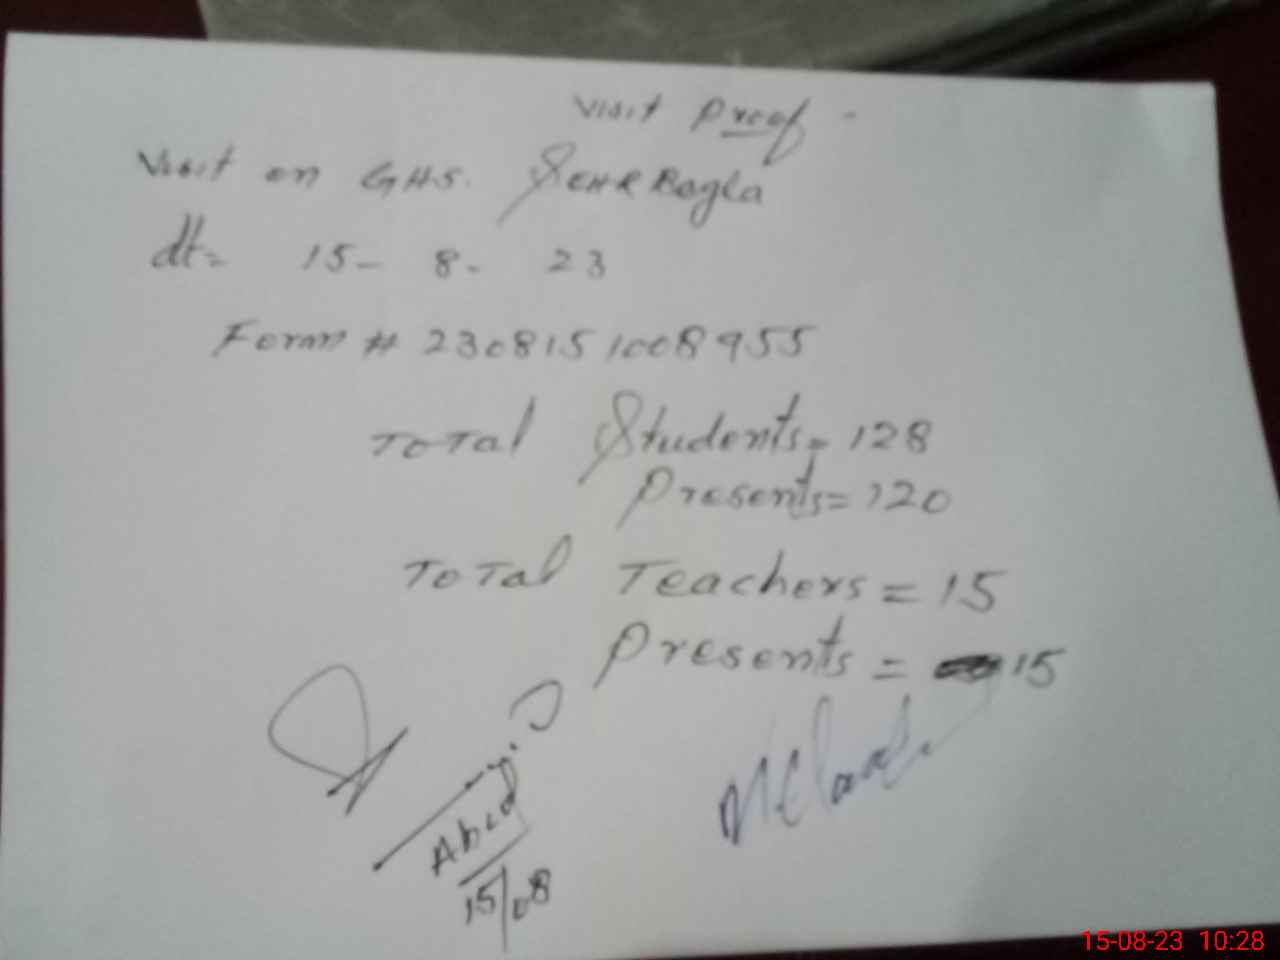 Visit Proof -
Visit on GHS. SEHR Bagla
dt= 15- 8- 23
Form # 2308151008955
Total Students= 128
Presents= 120
Total Teachers = 15
Presents = 15
Abcd
15/08
15-08-23 10:28